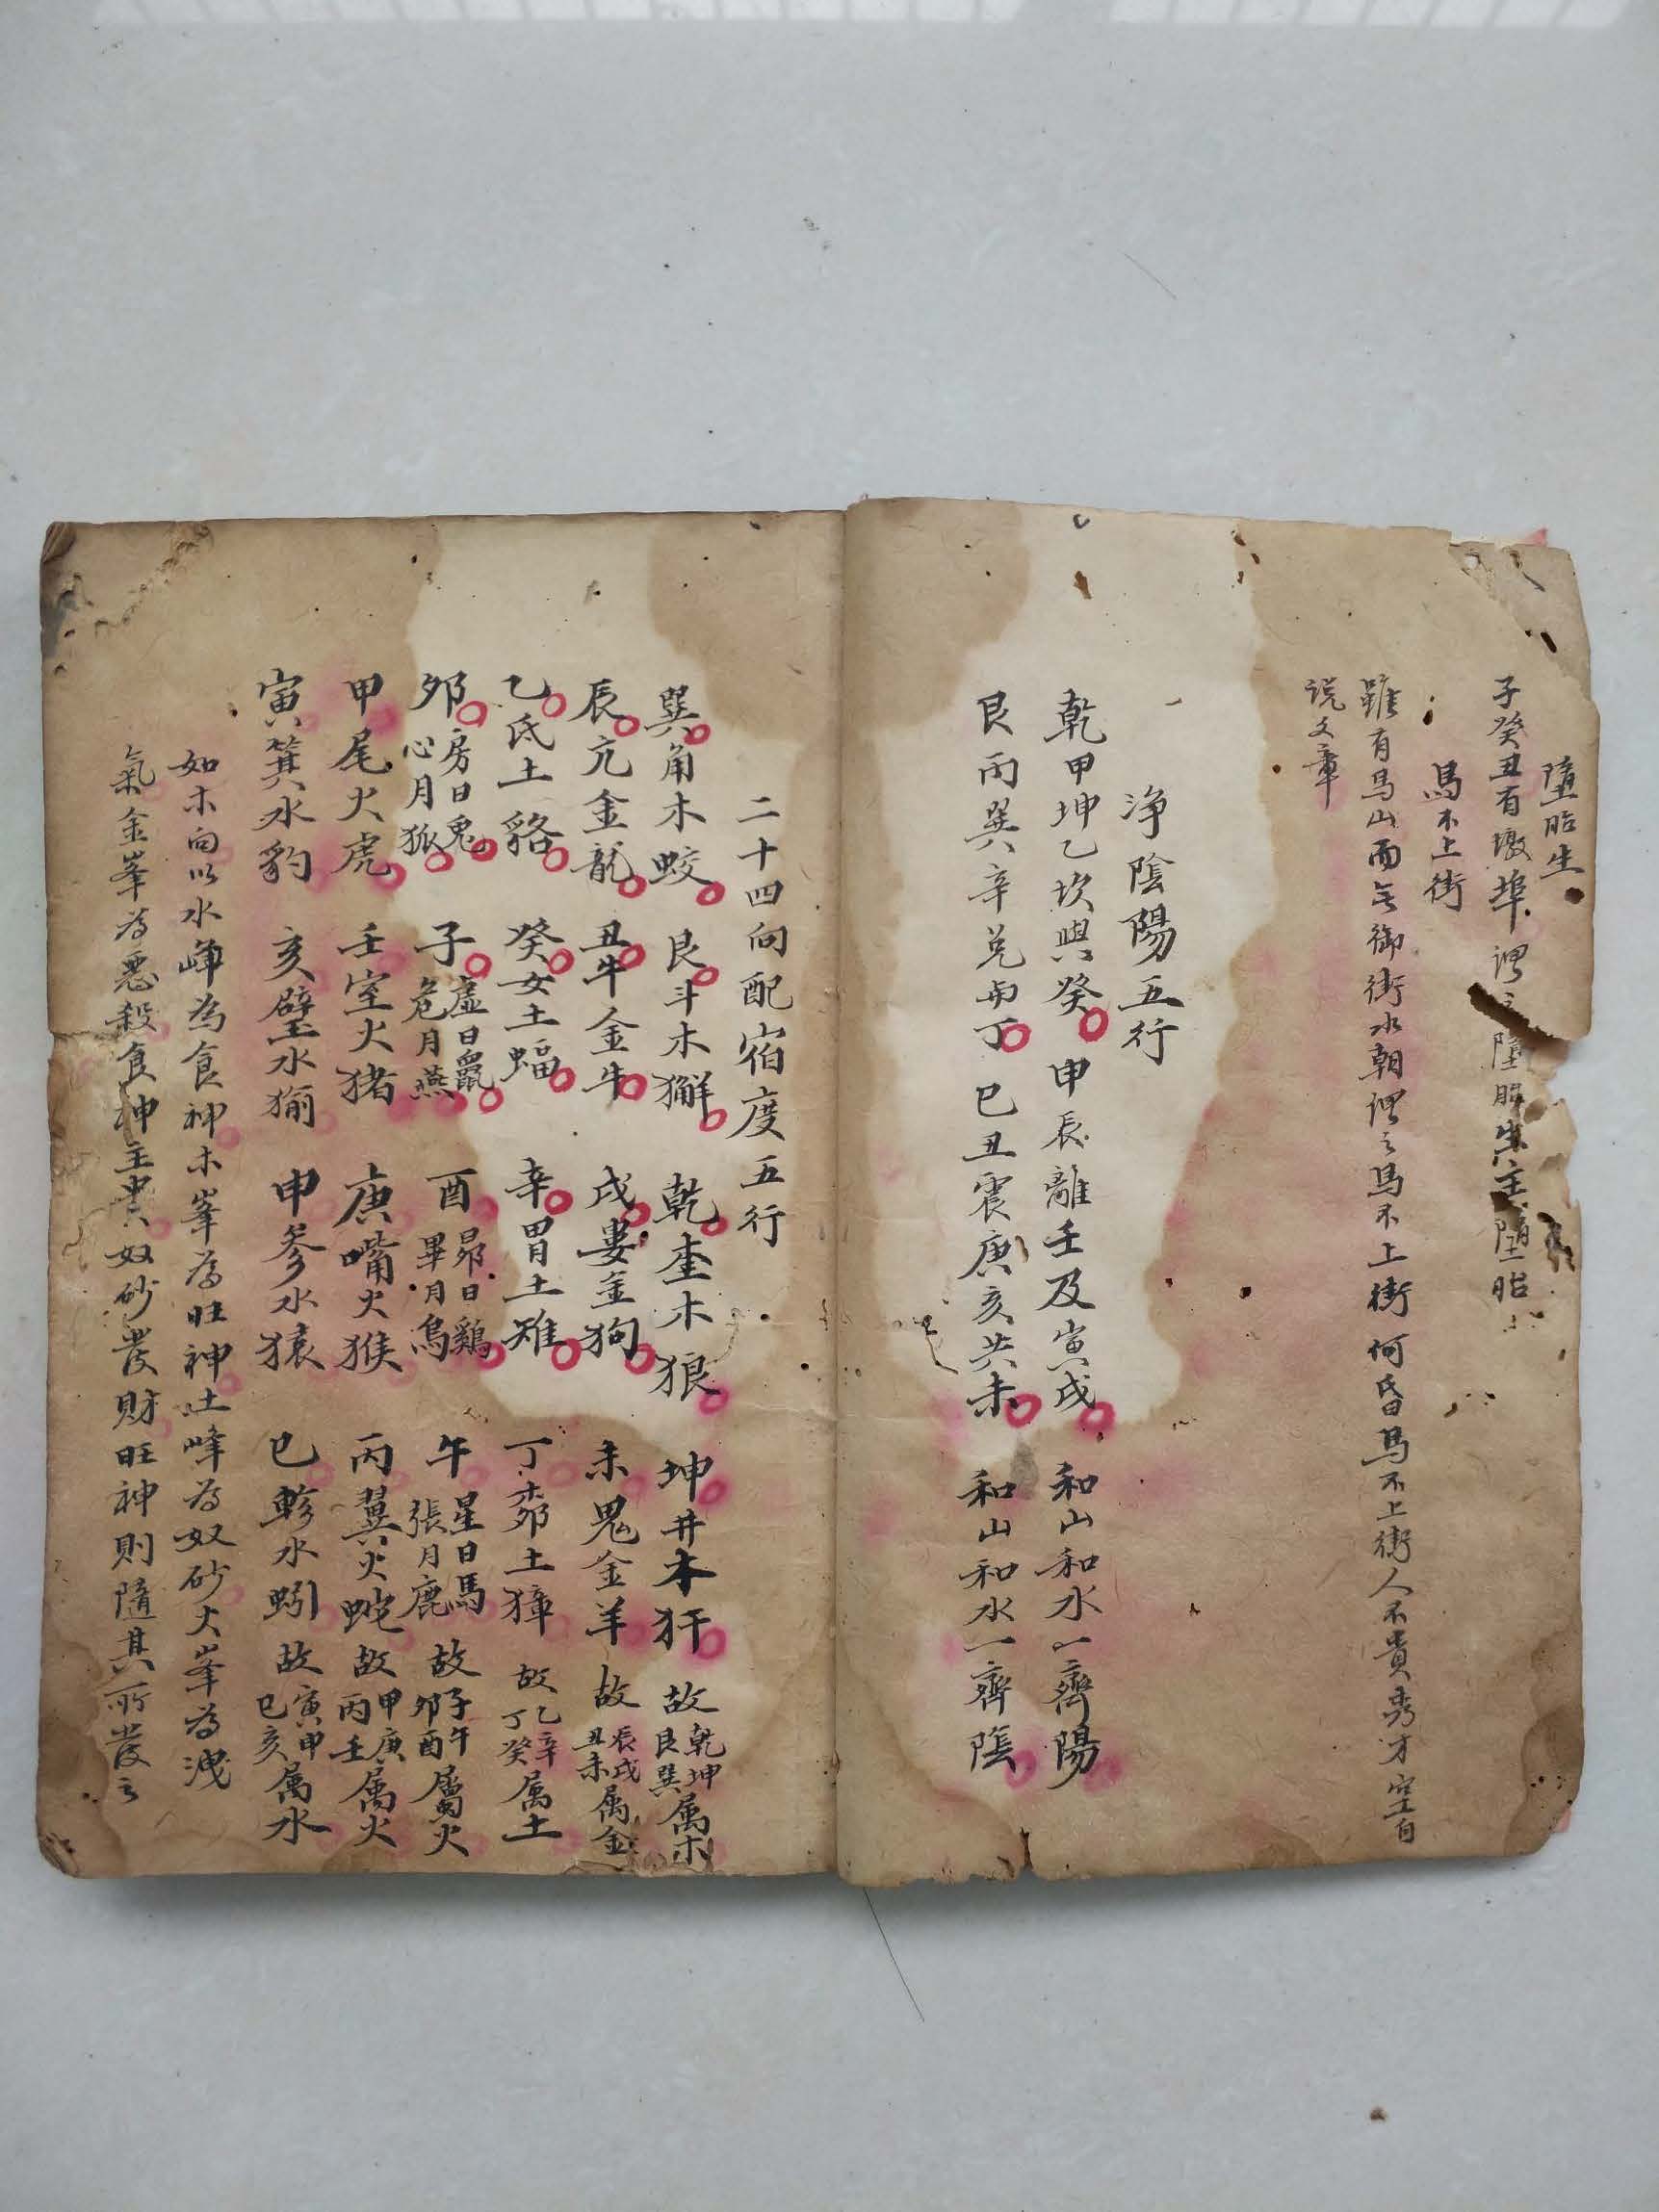 墮胎生
子癸丑有墩埠謂之墮胎生主墮胎
馬不上街
雖有馬山而无御街水朝謂之馬不上街何昏馬不上街人不貴秀才空自
說文章
净陰陽五行
乾甲坤乙坎與癸申辰離壬及寅戌和山和水一齊陽
艮丙巽辛兑與丁巳丑震庚亥共未和山和水一齊陰
二十四向配宿度五行
巽角木蛟艮斗木獬乾奎木狼坤井木犴故乾坤艮巽属木
辰亢金龍丑牛金牛戌婁金狗未鬼金羊故辰戌丑未属金
乙氐土貉癸女土蝠辛胃土雉丁柳土獐故乙辛丁癸属土
卯房日兔心月狐子虛日鼠危月燕酉昴日鷄畢月烏午星日馬張月鹿故子午卯酉屬火
甲尾火虎壬室火猪庚嘴火猴丙翼火蛇故甲庚丙壬属火
寅箕水豹亥壁水㺄申參水猿巳軫水蚓故寅申巳亥属水
如木向以水峰為食神木峯為旺神土峰為奴砂火峯為洩
氣金峯為惡殺食神主貴奴砂發財旺神則隨其所發之